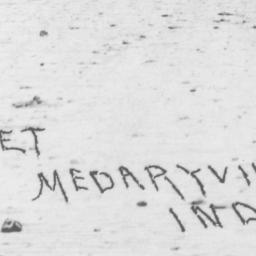 ET
MEDARYVI
IND